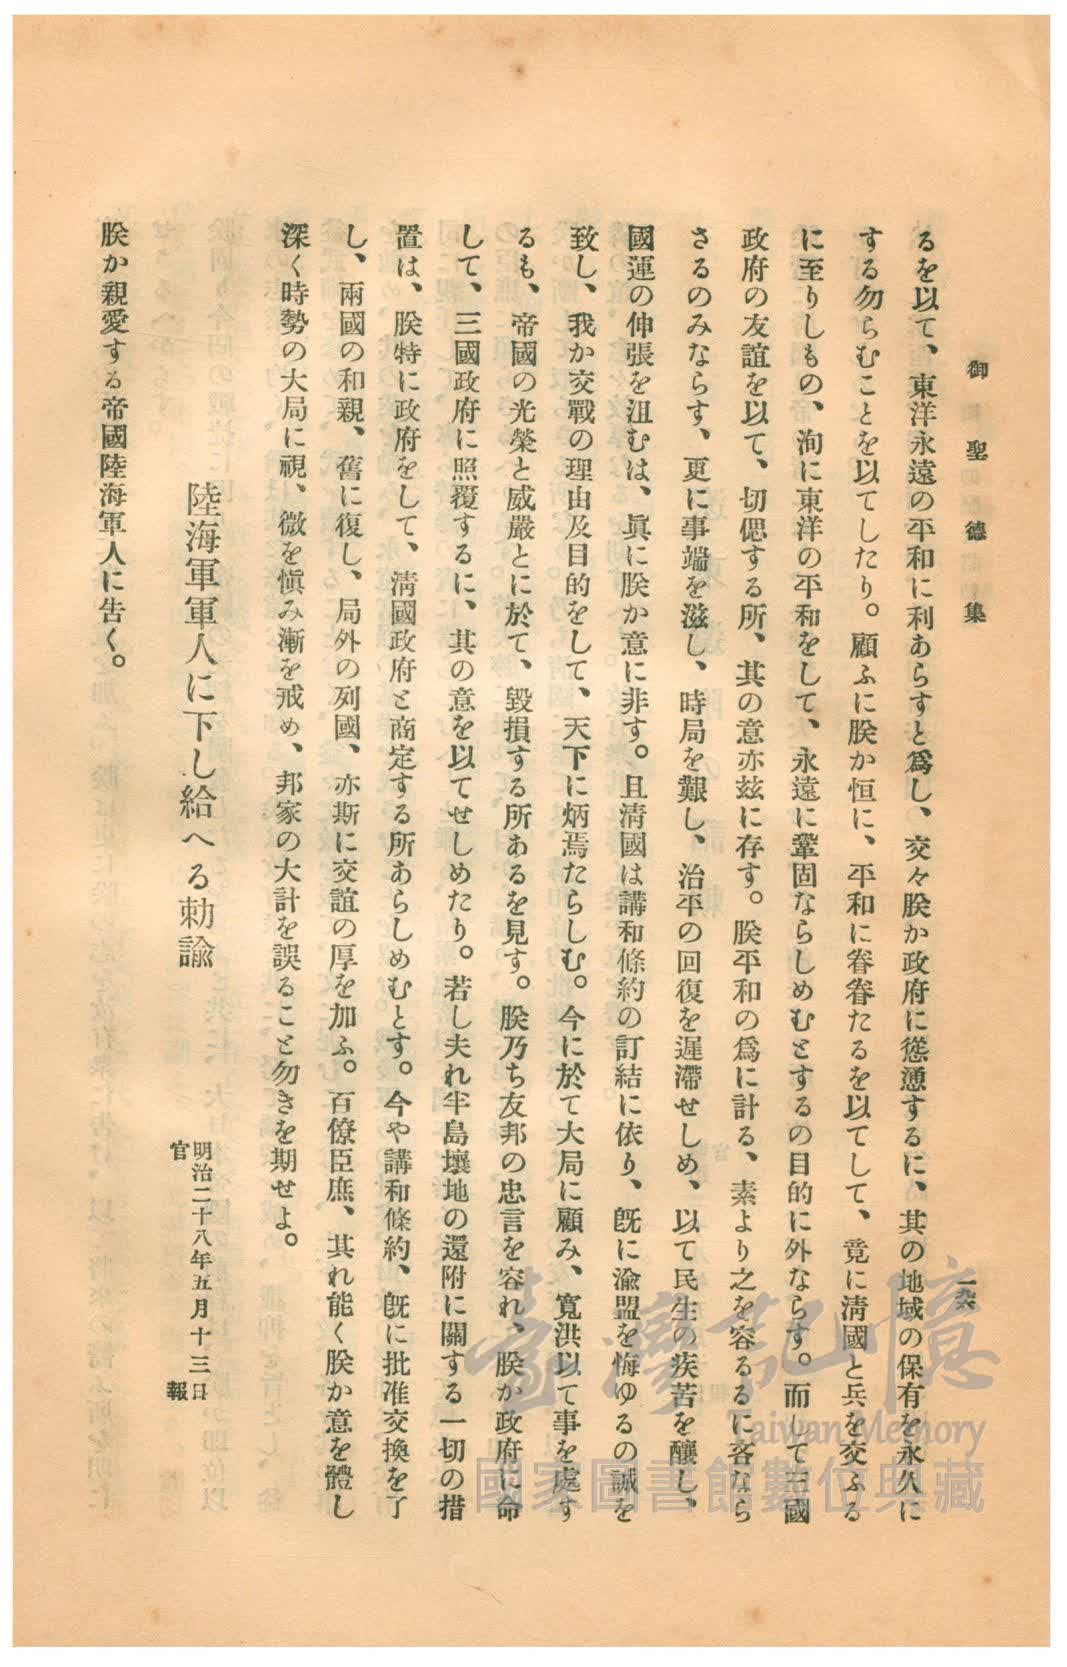 御聖德集
一九六
るを以て、東洋永遠の平和に利あらすと爲し、交々朕か政府に慫慂するに、其の地域の保有を永久に
する勿らむことを以てしたり。顧ふに朕か恒に、平和に眷眷たるを以てして、竟に淸國と兵を交ふる
に至りしもの、洵に東洋の平和をして、永遠に鞏固ならしめむとするの目的に外ならす。而して三國
政府の友誼を以て、切偲する所、其の意亦玆に存す。朕平和の爲に計る、素より之を容るるに吝なら
さるのみならす、更に事端を滋し、時局を艱し、治平の回復を遲滯せしめ、以て民生の疾苦を釀し、
國運の伸張を沮むは、眞に朕か意に非す。且淸國は講和條約の訂結に依り、旣に渝盟を悔ゆるの誠を
致し、我か交戰の理由及目的をして、天下に炳焉たらしむ。今に於て大局に顧み、寬洪以て事を處す
るも、帝國の光榮と威嚴とに於て、毀損する所あるを見す。朕乃ち友邦の忠言を容れ、朕か政府に命
して、三國政府に照覆するに、其の意を以てせしめたり。若し夫れ半島壤地の還附に關する一切の措
置は、朕特に政府をして、淸國政府と商定する所あらしめむとす。今や講和條約、旣に批准交換を了
し、兩國の和親、舊に復し、局外の列國、亦斯に交誼の厚を加ふ。百僚臣庶、其れ能く朕か意を體し
深く時勢の大局に視、微を愼み漸を戒め、邦家の大計を誤ること勿きを期せよ。
陸海軍軍人に下し給へる勅諭
明治二十八年五月十三日
官報
朕か親愛する帝國陸海軍人に吿く。
臺灣記憶
Taiwan Memory
國家圖書館數位典藏